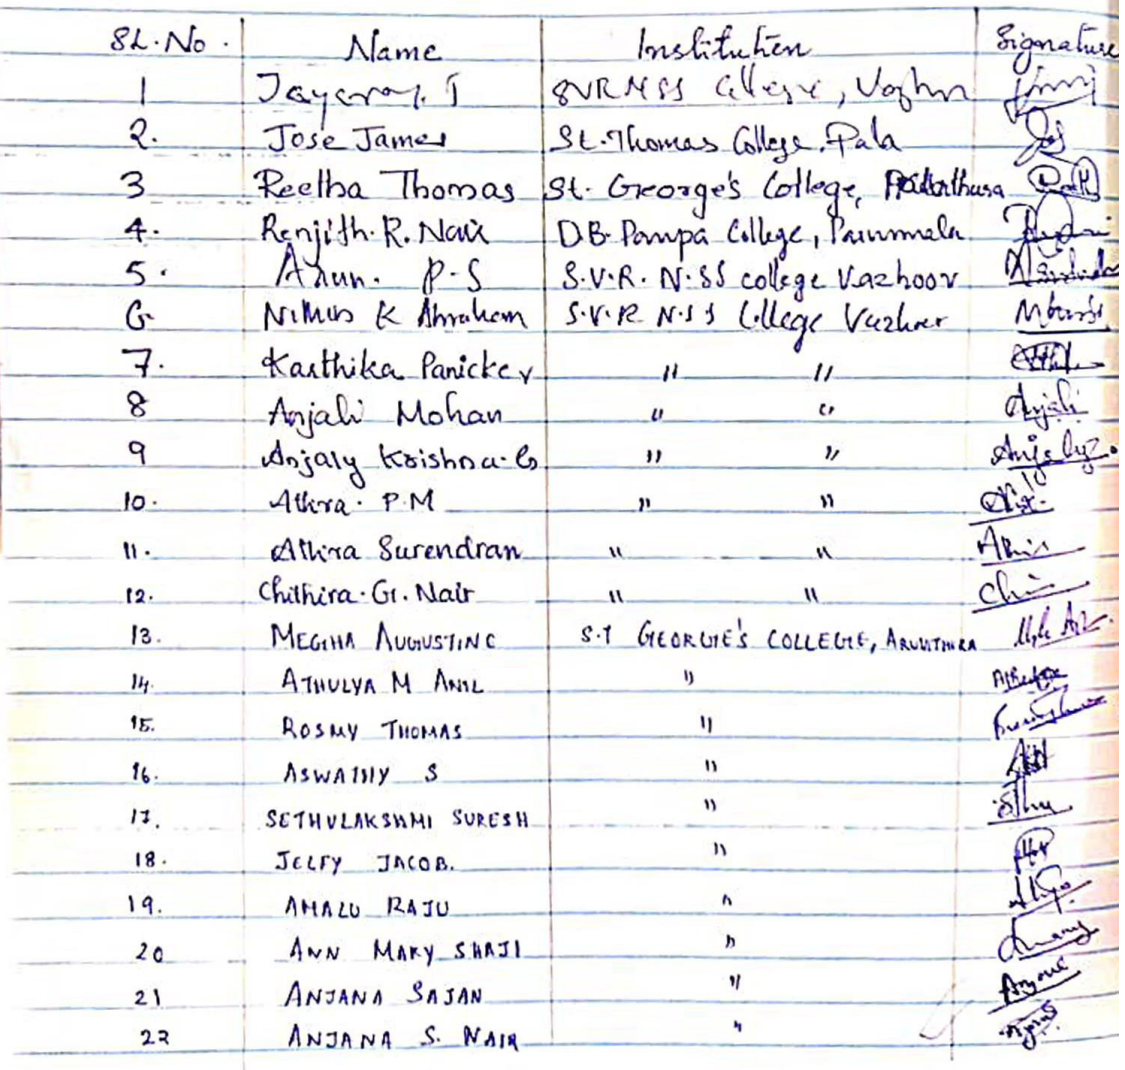 SL.No. Name Institution Signature
1 Jayaraj. T SVR NSS College,
2. Jose James St.Thomas College, Pala
3 Reetha Thomas St. George's College,
4. Renjith.R.Nair D.B. Pampa College, Parummala
5. Arun. P.S S.V.R. N.SS college Vazhoor
6. K Abraham S.V.R N.S S College Vazhoor
7. Karthika Panicker " "
8 Anjali Mohan " " Anjali
9 Anjaly Krishna. " " Anjaly
10. Athira. P.M " "
11. Athira Surendran " "
12. Chithira.G.Nair " " Chi
13. MEGHA AUGUSTINE S.T GEORGE'S COLLEGE, ARUVITHURA
14. ATHULYA M ANIL "
15. ROSMY THOMAS "
16. ASWATHY S "
17. SETHULAKSHMI SURESH "
18. JELFY JACOB. "
19. AMALU RAJU "
20 ANN MARY SHAJI "
21 ANJANA SAJAN "
22 ANJANA S. NAIR "